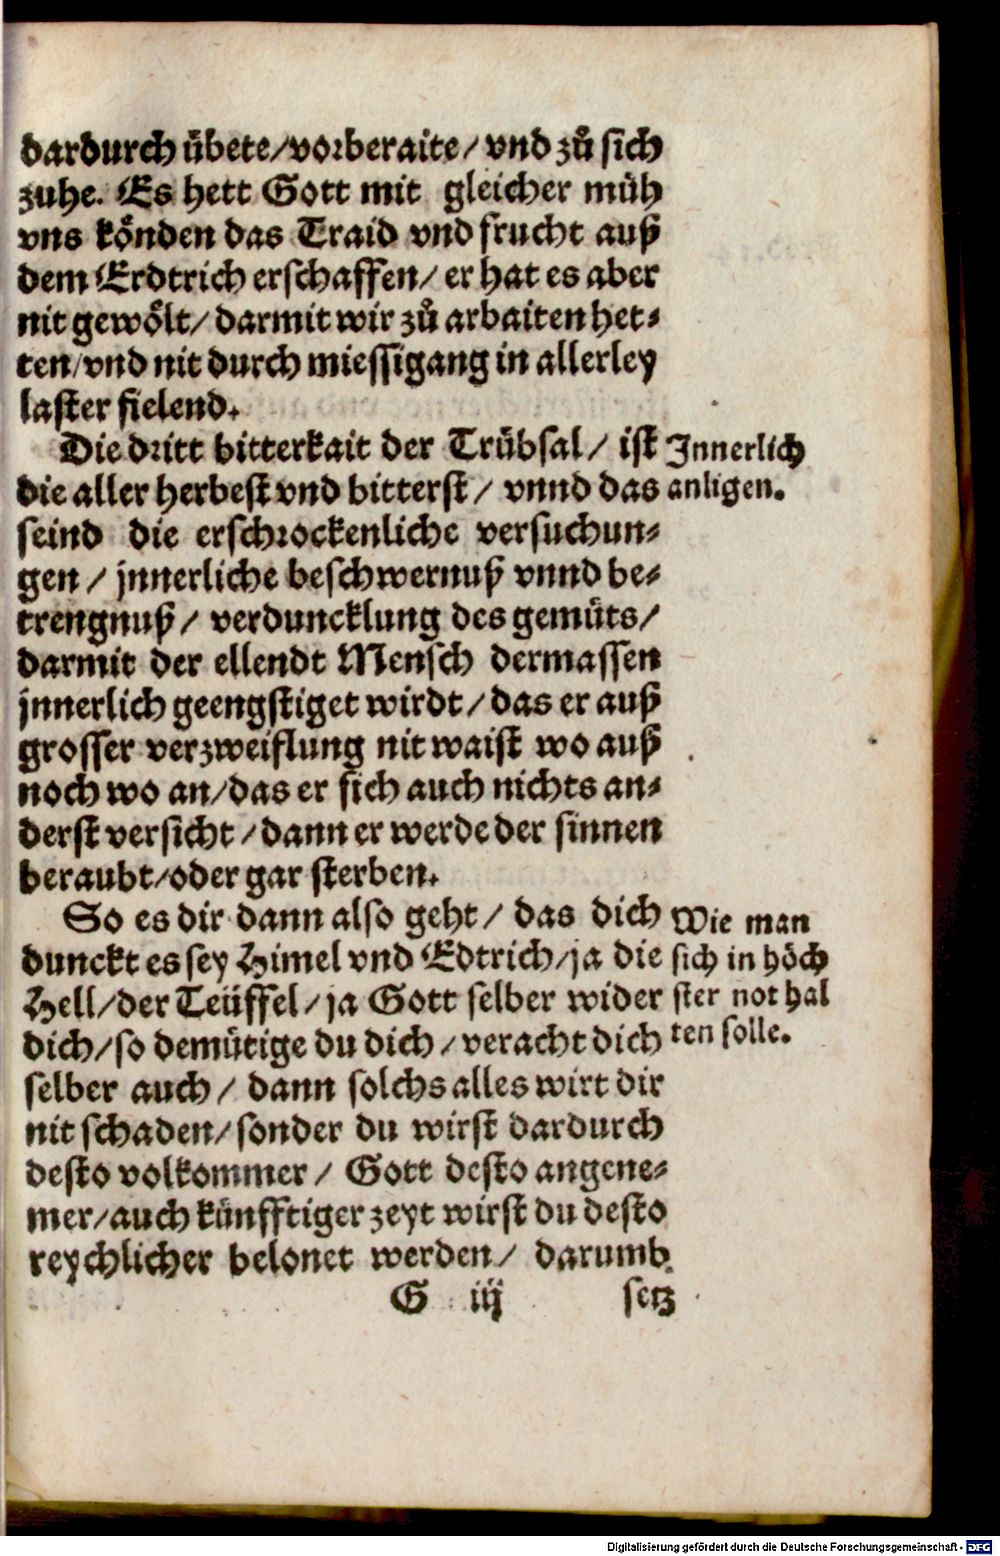 dardurch übete/vorberaite/ vnd zů sich
zuhe. Es hett Gott mit gleicher müh
vns könden das Traid vnd frucht auß
dem Erdtrich erschaffen/ er hat es aber
nit gewölt/ darmit wir zů arbaiten het-
ten/vnd nit durch miessigang in allerley
laster fielend.
Die dritt bitterkait der Trübsal/ ist
die aller herbest vnd bitterst/ vnnd das
seind die erschrockenliche versuchun-
gen/ jnnerliche beschwernuß vnnd be-
trengnuß/ verduncklung des gemüts/
darmit der ellendt Mensch dermassen
jnnerlich geengstiget wirdt/ das er auß
grosser verzweiflung nit waist wo auß
noch wo an/das er sich auch nichts an-
derst versicht/ dann er werde der sinnen
beraubt/oder gar sterben.
Innerlich
anligen.
So es dir dann also geht/ das dich
dunckt es sey Himel vnd Edtrich/ja die
Hell/der Teüffel/ja Gott selber wider
dich/so demütige du dich/veracht dich
selber auch/ dann solchs alles wirt dir
nit schaden/sonder du wirst dardurch
desto volkommer/ Gott desto angene-
mer/auch künfftiger zeyt wirst du desto
reychlicher belonet werden/ darumb
Wie man
sich in höch
ster not hal
ten solle.
G iij setz
Digitalisierung gefördert durch die Deutsche Forschungsgemeinschaft - DFG